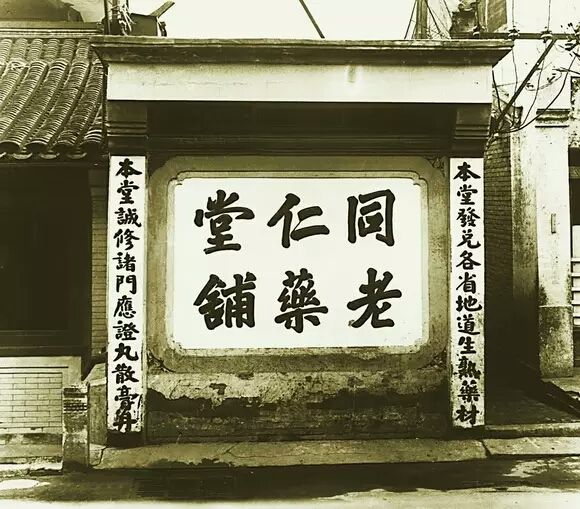 本堂發兌各省地道生熟藥材
同仁堂
老藥舖
本堂誠修諸門應證丸散膏丹